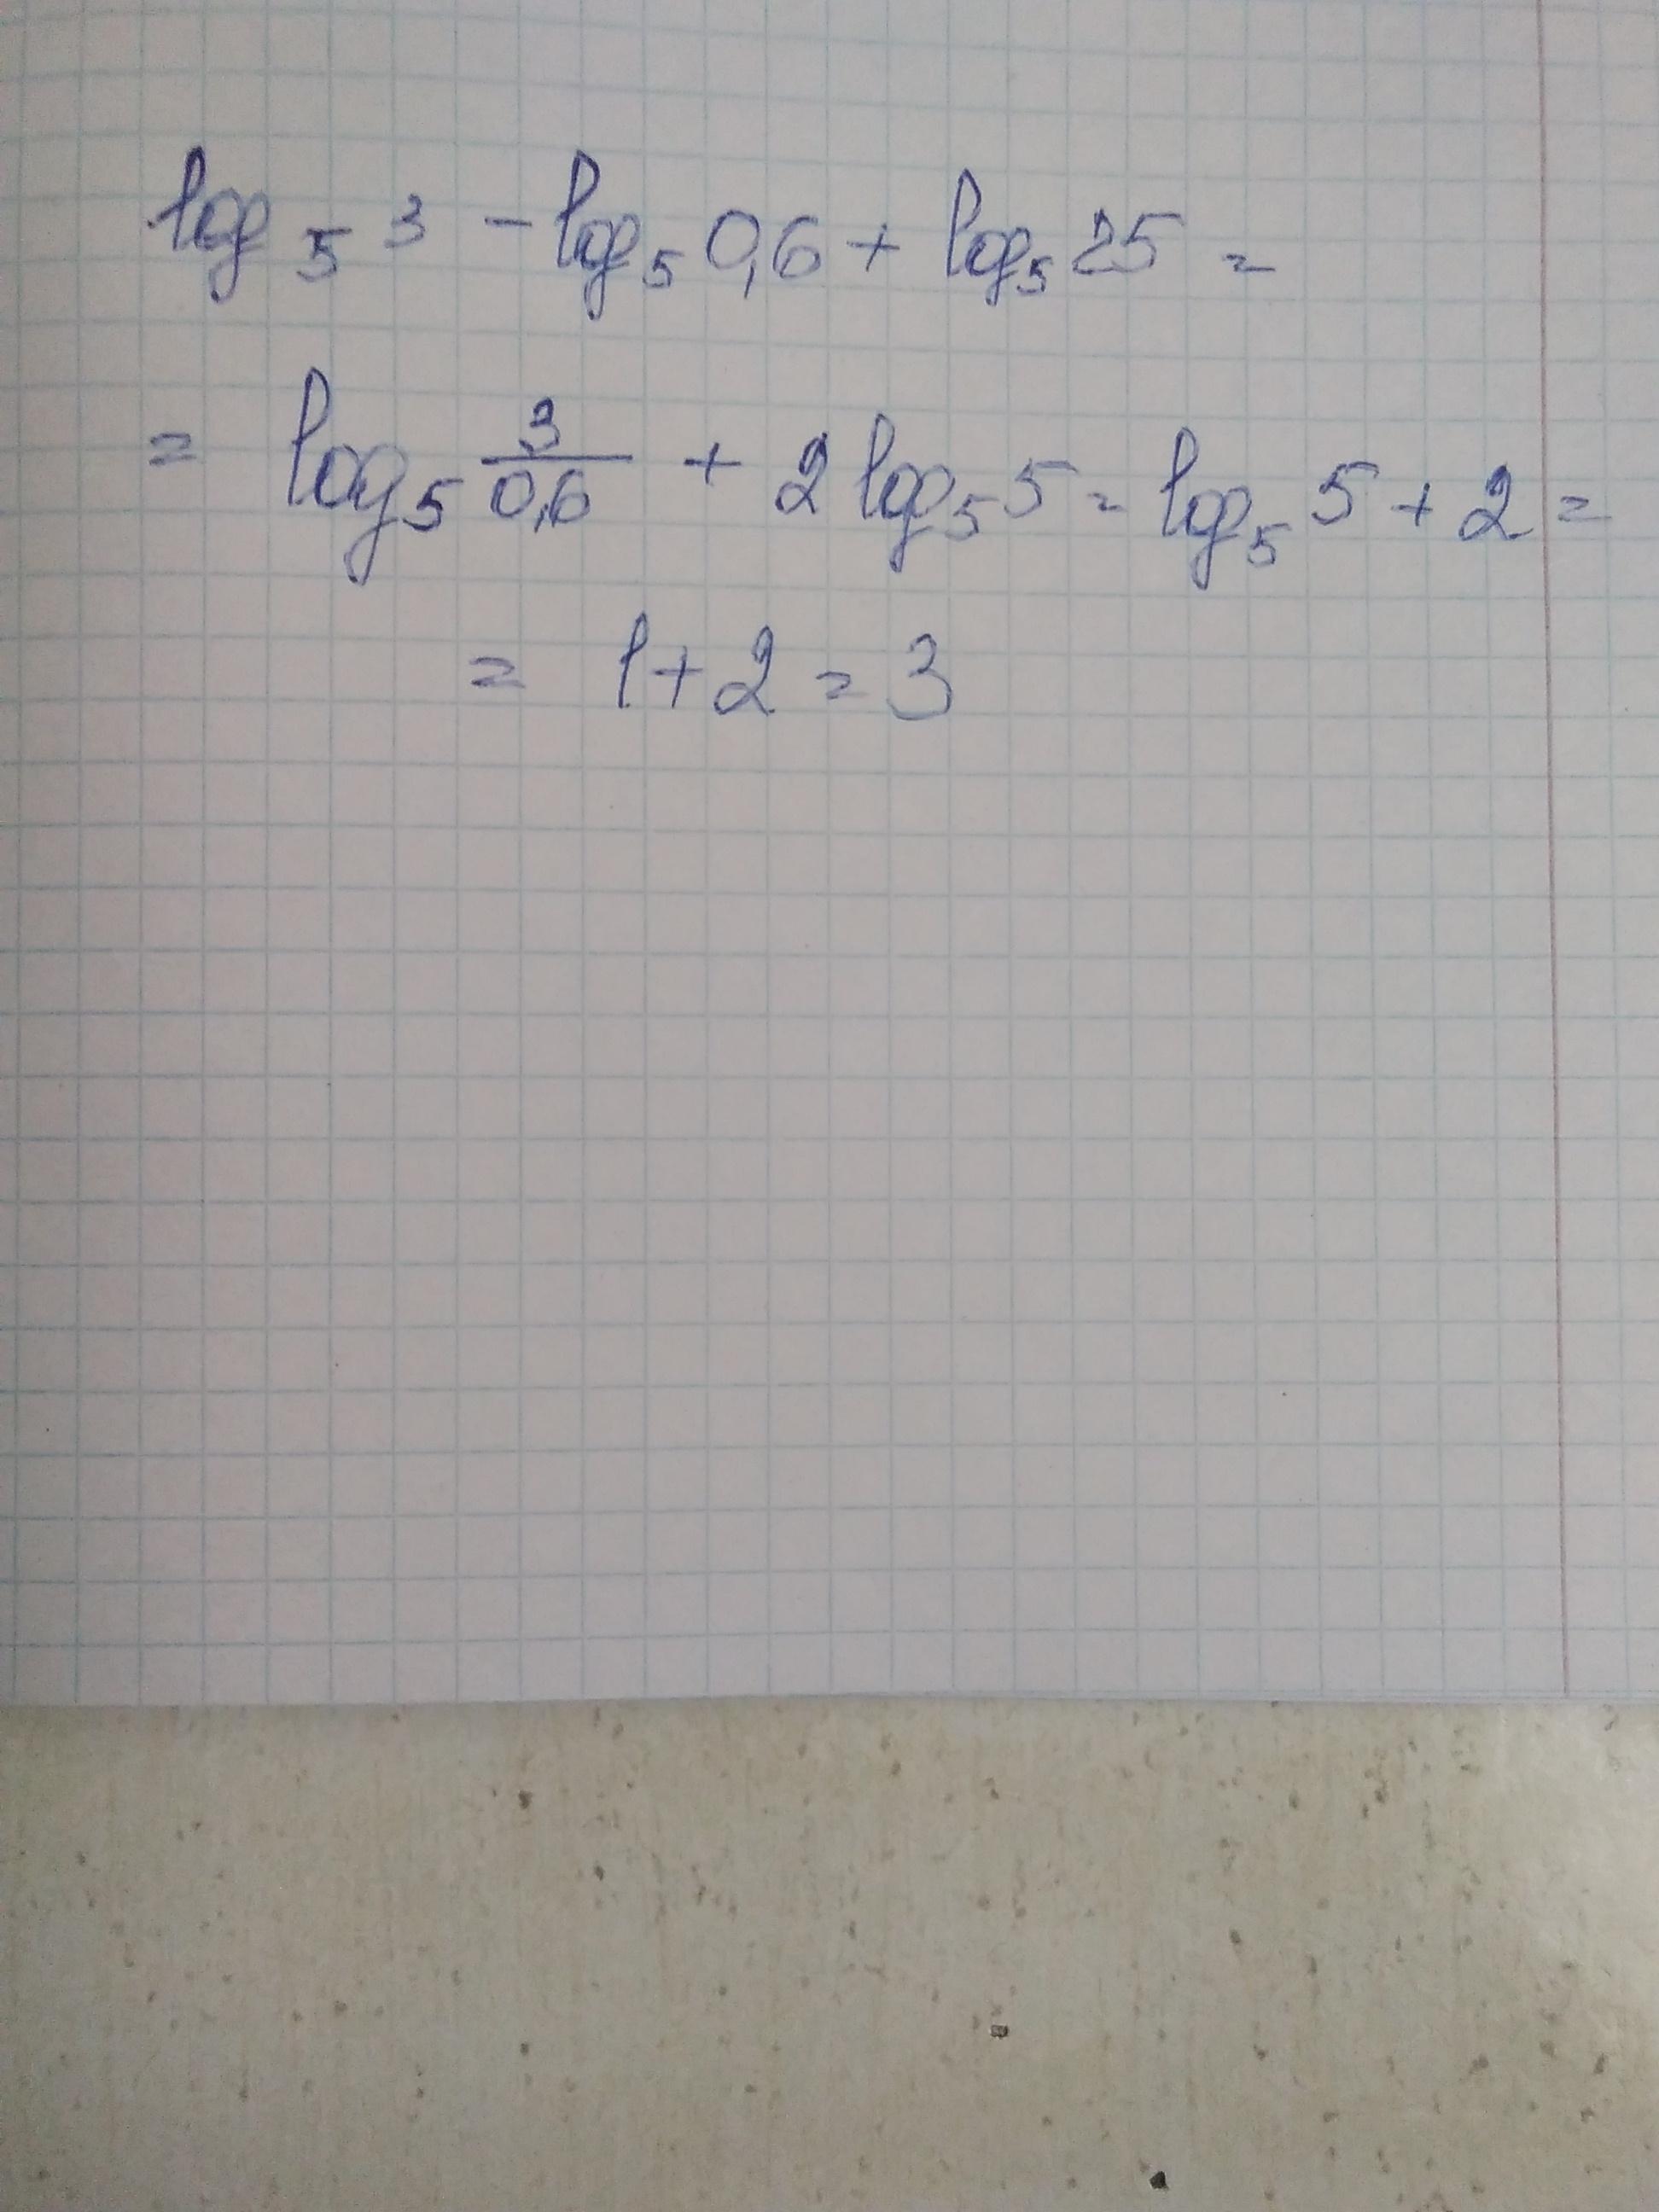 log₅ 3 - log₅ 0,6 + log₅ 25 =
= log₅ 3/0,6 + 2 log₅ 5 = log₅ 5 + 2 =
= 1 + 2 = 3